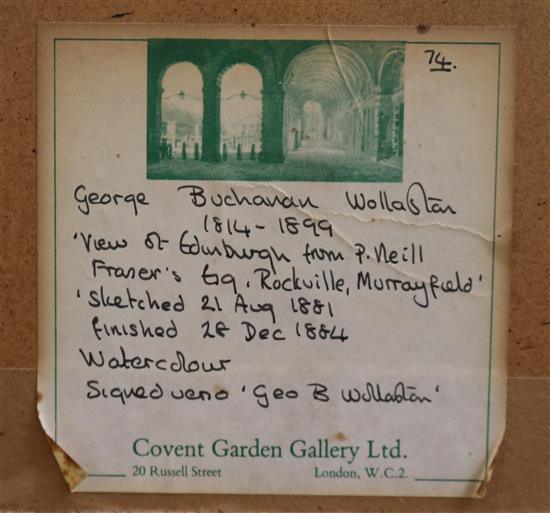 74.
George Buchanan Wollaston
1814 - 1899
'View of Edinburgh from P. Neill
Fraser's Esq. Rockville, Murrayfield'
'Sketched 21 Aug 1881
finished 28 Dec 1884
Watercolour
Signed verso 'Geo B Wollaston'
Covent Garden Gallery Ltd.
20 Russell Street London, W.C.2.